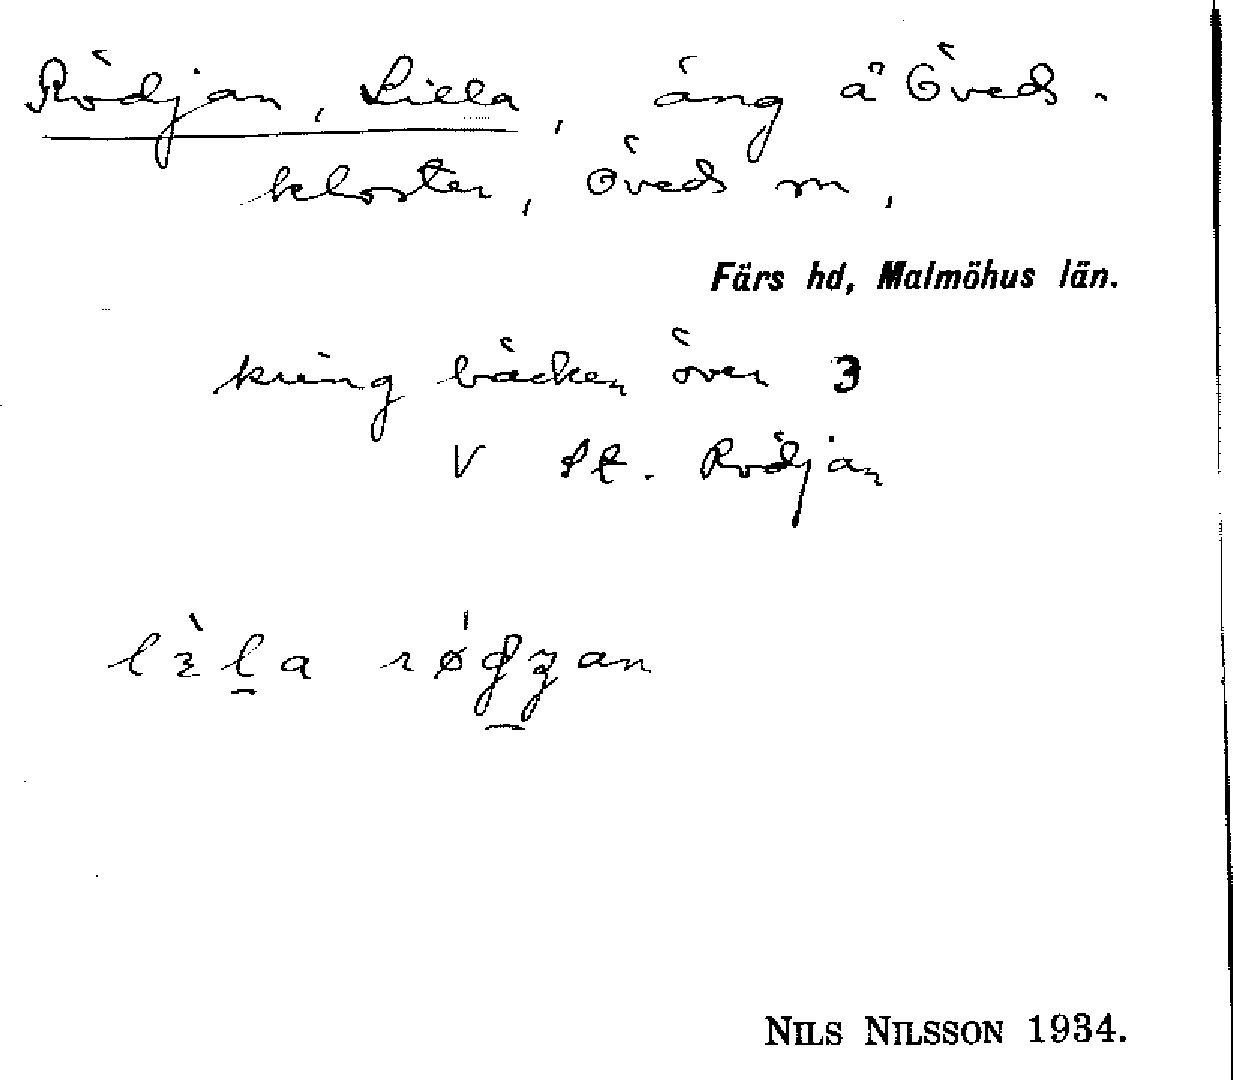 Rödjan, Lilla, äng å Öveds-
kloster, Öveds sn,
Färs hd, Malmöhus län.
kring bäcken över 3
V St. Rödjan
NILS NILSSON 1934.